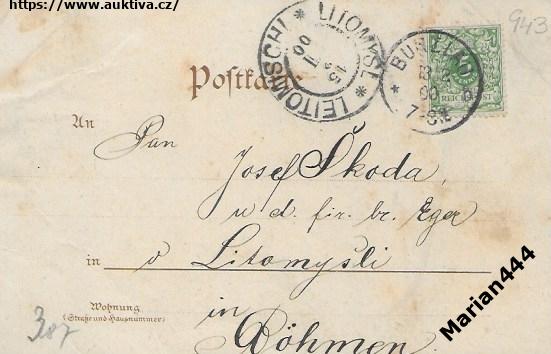 https://www.auktiva.cz/
943
Postkarte
LITOMYŠL * LEITOMISCHL *
15
00
BERLIN
00
7-8
REICHSPOST
An
Pan
Josef Škoda,
u d. fir. br. Eger
in v Litomyšli
Wohnung
(Straße und Hausnummer)
in
Böhmen
307
Marian444